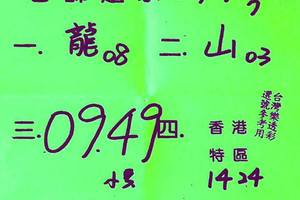 一. 龍08 二. 山03
三. 09.49 四. 香港
特區
1424
台灣樂透彩
選號參考用